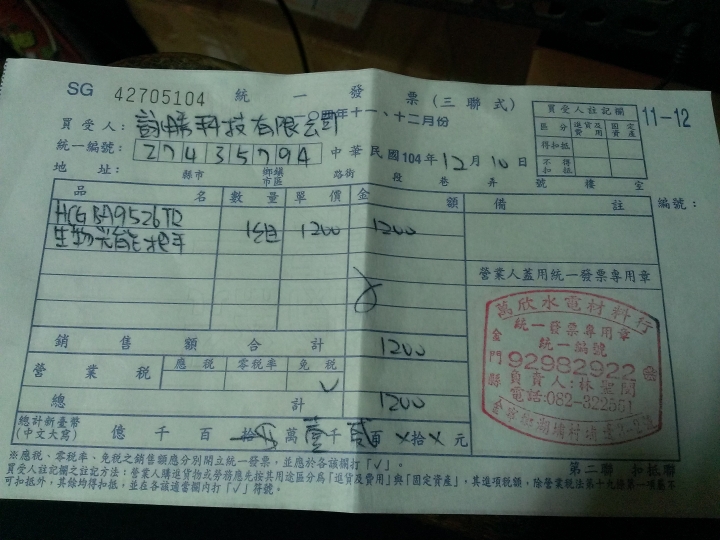 SG 42705104 統一發票(三聯式)
年十一、十二月份
11-12
買受人: 科技有限公司
統一編號: 27435794 中華民國104年12月10日
地址: 縣市 鄉鎮市區 路街 段 巷 弄 號 樓 室
買受人註記欄
區分 進貨及費用 固定資產
得扣抵
不得扣抵
品名 數量 單價 金額 備註 編號:
HCG BA9526TR
生物光能把手 1組 1200 1200
營業人蓋用統一發票專用章
銷售額合計 1200
營業稅 應稅 零稅率 免稅
√
總計 1200
總計新臺幣(中文大寫) 億 千 百 拾 萬 壹千 貳百 ×拾× 元
萬欣水電材料行
統一發票專用章
統一編號
金門縣
92982922
負責人:林
電話:082-322551
※應稅、零稅率、免稅之銷售額應分別開立統一發票,並應於各該欄打「√」。
第二聯 扣抵聯
買受人註記欄之註記方法:營業人購進貨物或勞務應先按其用途區分為「進貨及費用」與「固定資產」,其進項稅額,除營業稅法第十九條第一項屬不
可扣抵外,其餘均得扣抵,並在各該適當欄內打「√」符號。